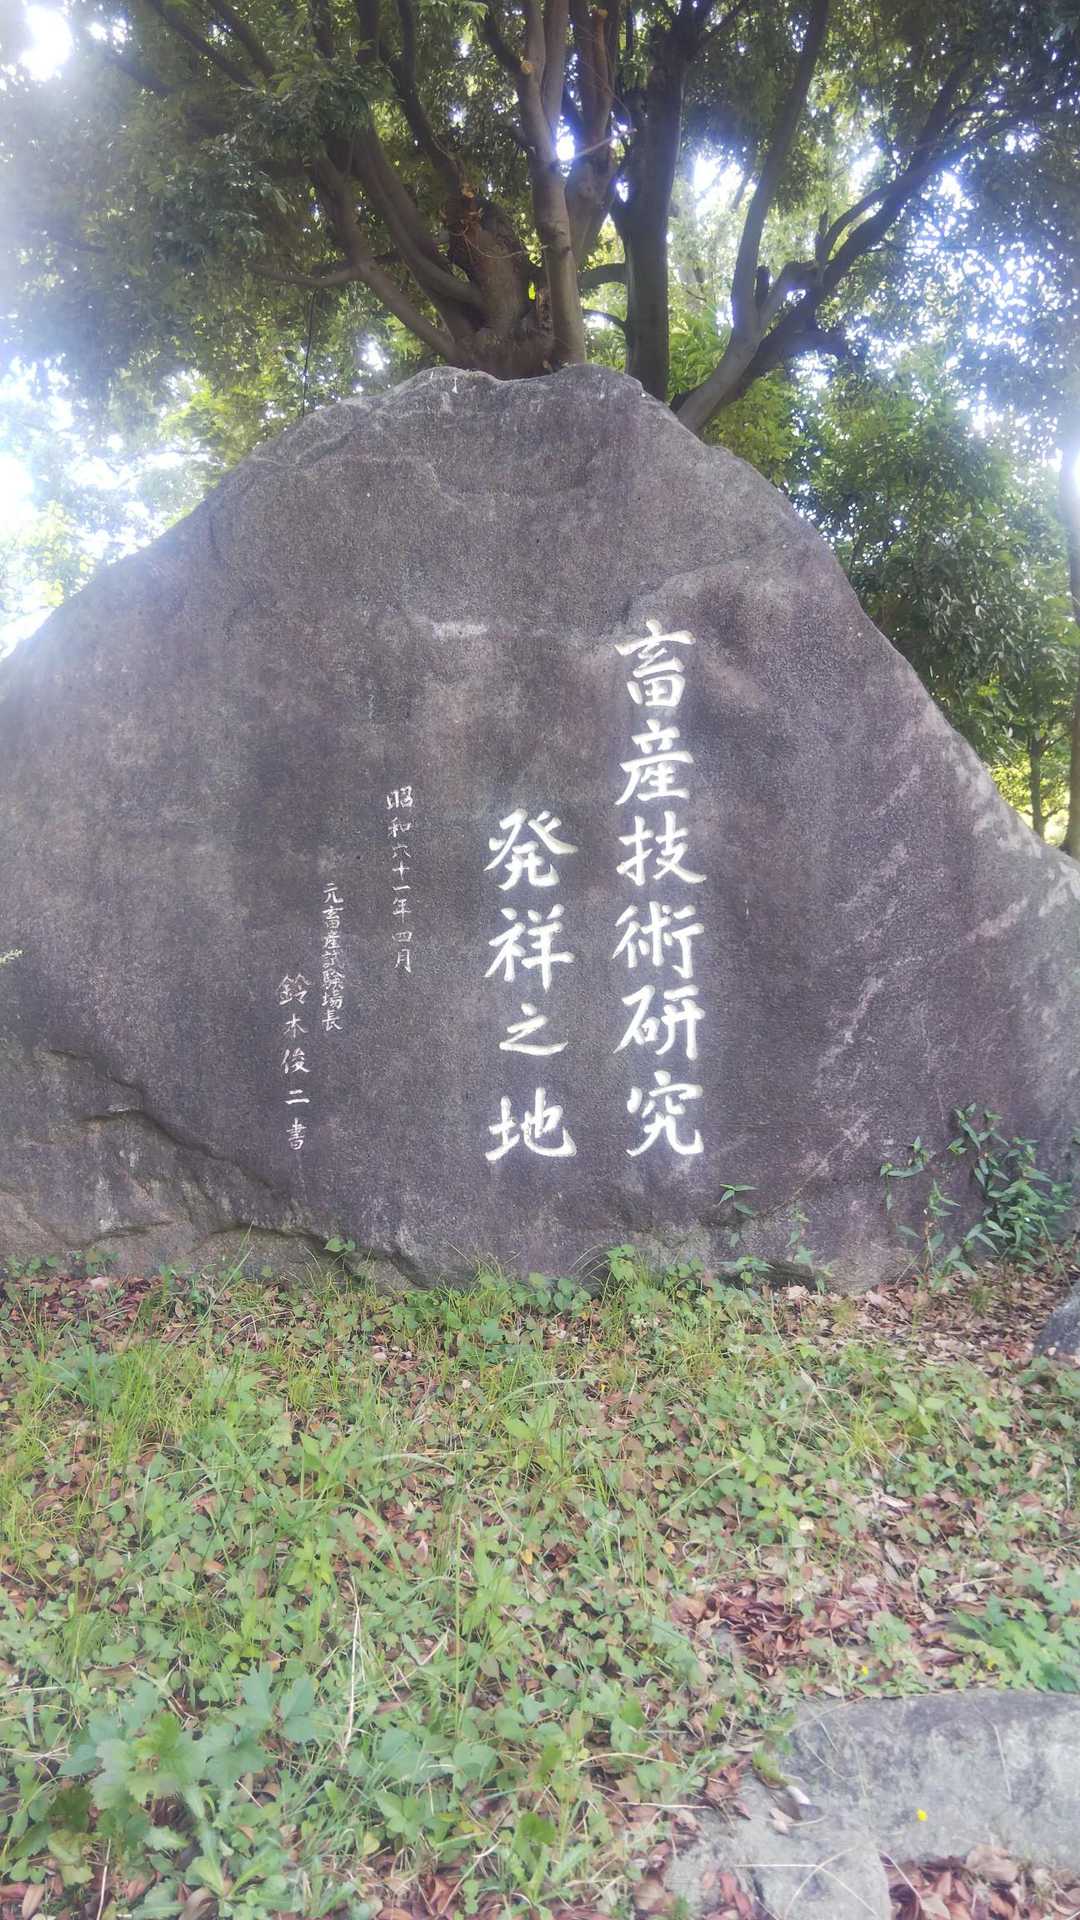 畜産技術研究
発祥之地
昭和六十一年四月
元畜産試験場長
鈴木俊二書